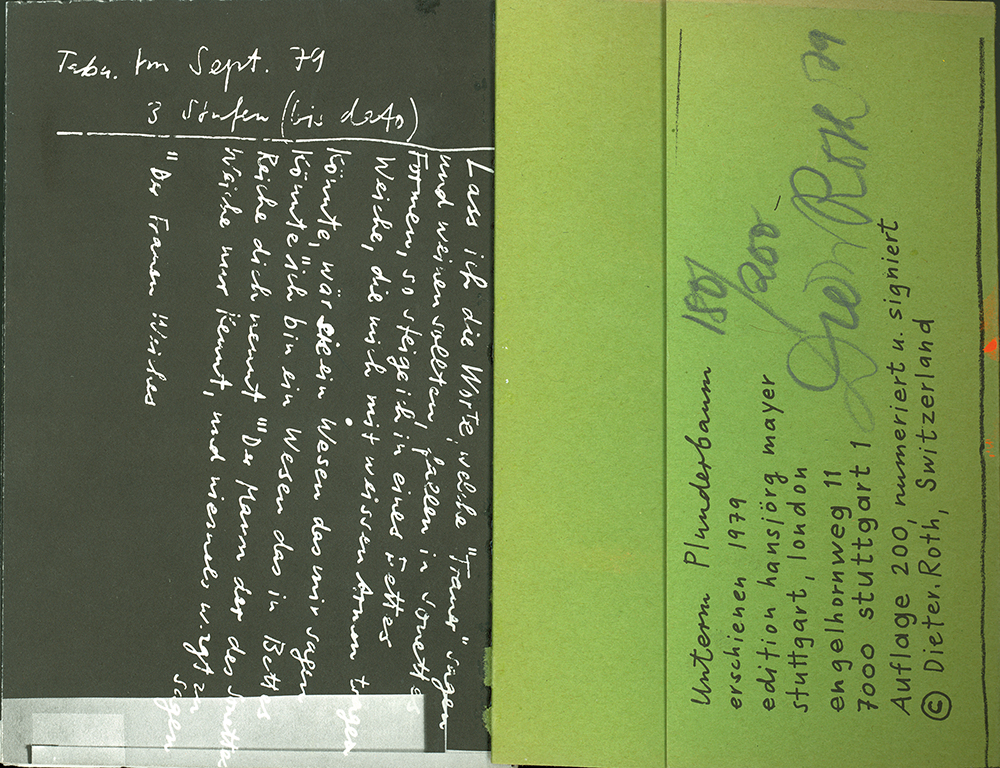 Tabu. Em Sept. 79
3 Stufen (bis dato)
Lass ich die Worte, welche "Trauer" sagen
und weinen sollten, fallen in Sonettes
Formen, so steige ich in eines Bettes
Weiche, die mich mit weissen Armen tragen
Könnte, wär sie ein Wesen das mir sagen
Könnte "ich bin ein Wesen das in Bettes
Reiche dich nennt "Der Mann der des Sonettes
Weiche nur kennt, und niemals wagt zu
sagen
"Der Frauen Weiches
Unterm Plunderbaum 180/200
erschienen 1979
edition hansjörg mayer
stuttgart, london
engelhornweg 11
7000 stuttgart 1
Dieter Roth 79
Auflage 200, numeriert u. signiert
© Dieter.Roth, Switzerland